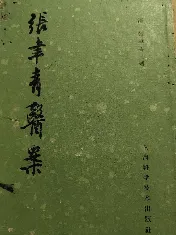 張聿青醫案
上海科學技术出版社